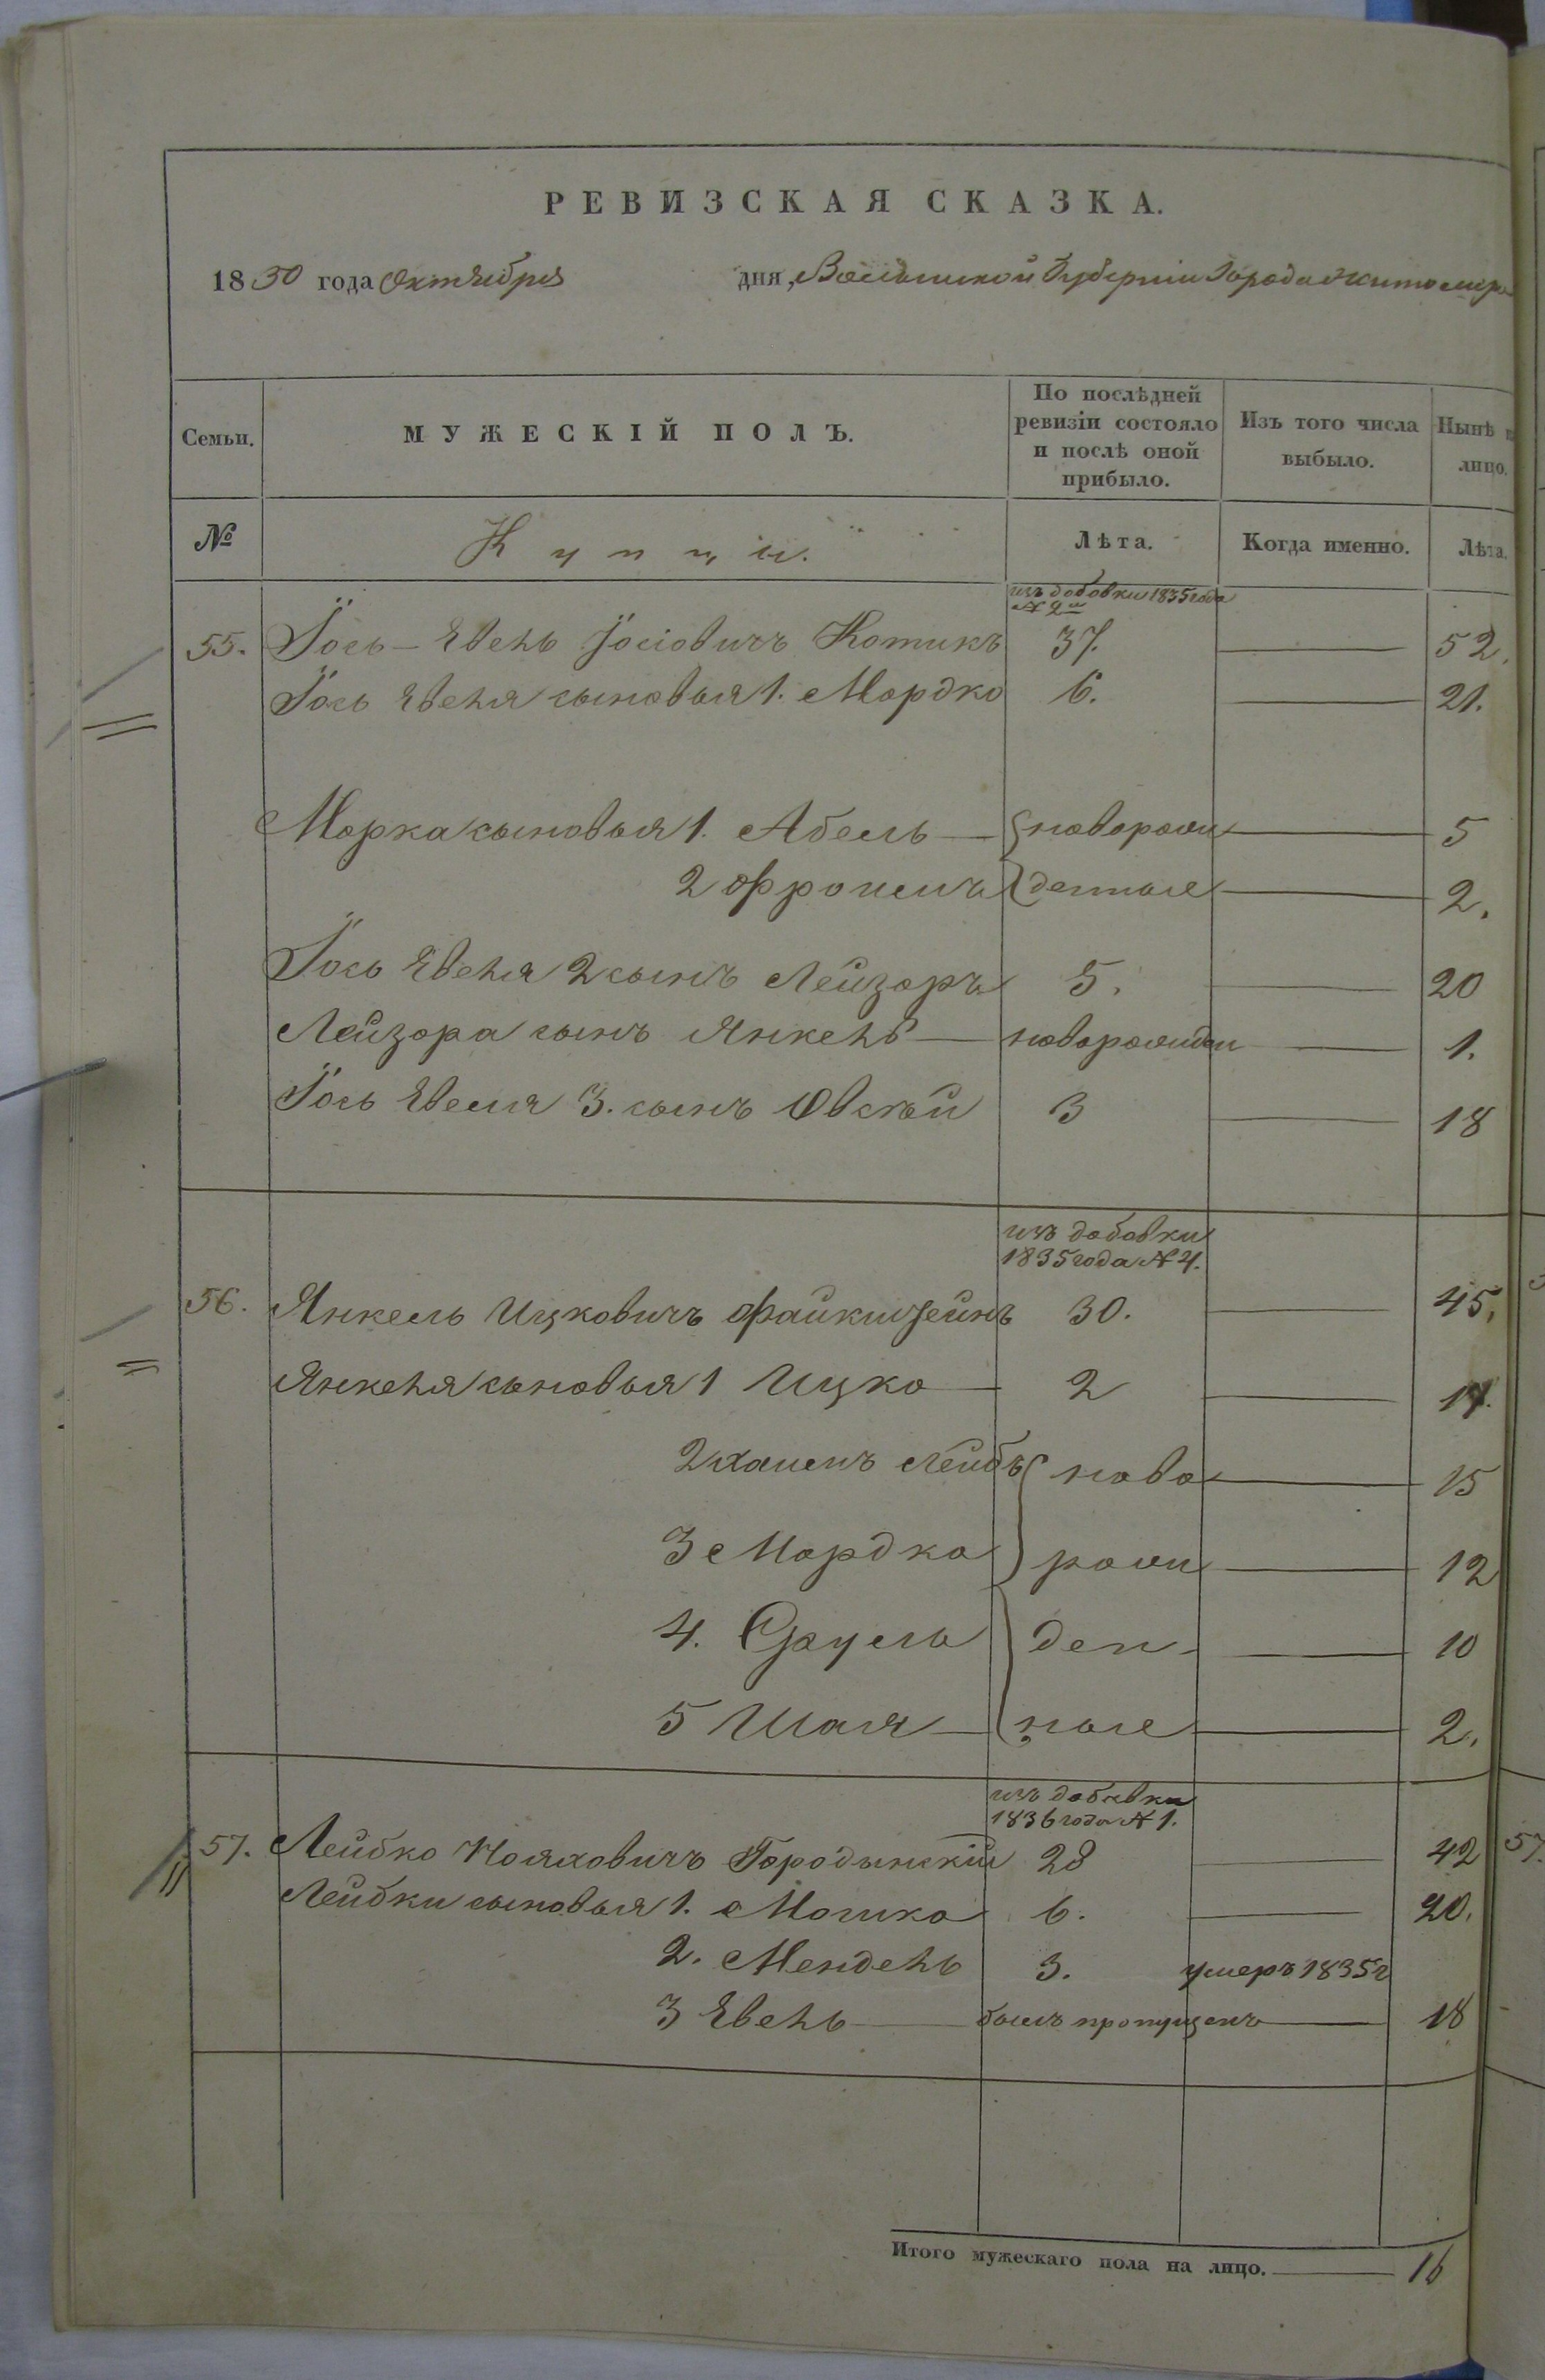 РЕВИЗСКАЯ СКАЗКА.
1850 года Октября дня, Волынской Губернии Города Житомира
Семьи. МУЖЕСКІЙ ПОЛЪ. По послѣдней ревизіи состояло и послѣ оной прибыло. Изъ того числа выбыло. Нынѣ на лицо.
№ Купцы. Лѣта. Когда именно. Лѣта.
изъ добовки 1835 года
№ 2
55. Іось-Евель Іосіовичъ Котикъ 37. 52.
Іось Евеля сыновья 1. Мордко 6. 21.
Морка сыновья 1. Абель новорож 5
2 Фроимъ денные 2.
Іось Евеля 2 сынъ Лейзоръ 5. 20
Лейзора сынъ Янкель новорожден 1.
Іось Евеля 3. сынъ Овсѣй 3 18
изъ добовки
1835 года № 4.
56. Янкель Ицковичъ 30. 45.
Янкеля сыновья 1 Ицко 2 17.
2 Хаимъ Лейбъ ново 15
3 Мордко рож 12
4. Сруль ден- 10
5 Шая ные 2.
изъ добавки
1836 года № 1.
57. Лейбко Нояховичъ Городынскій 28 42
Лейбки сыновья 1. Мошко 6. 20.
2. Мендель 3. умеръ 1835 г
3 Евель былъ пропущенъ 18
Итого мужескаго пола на лицо. 16